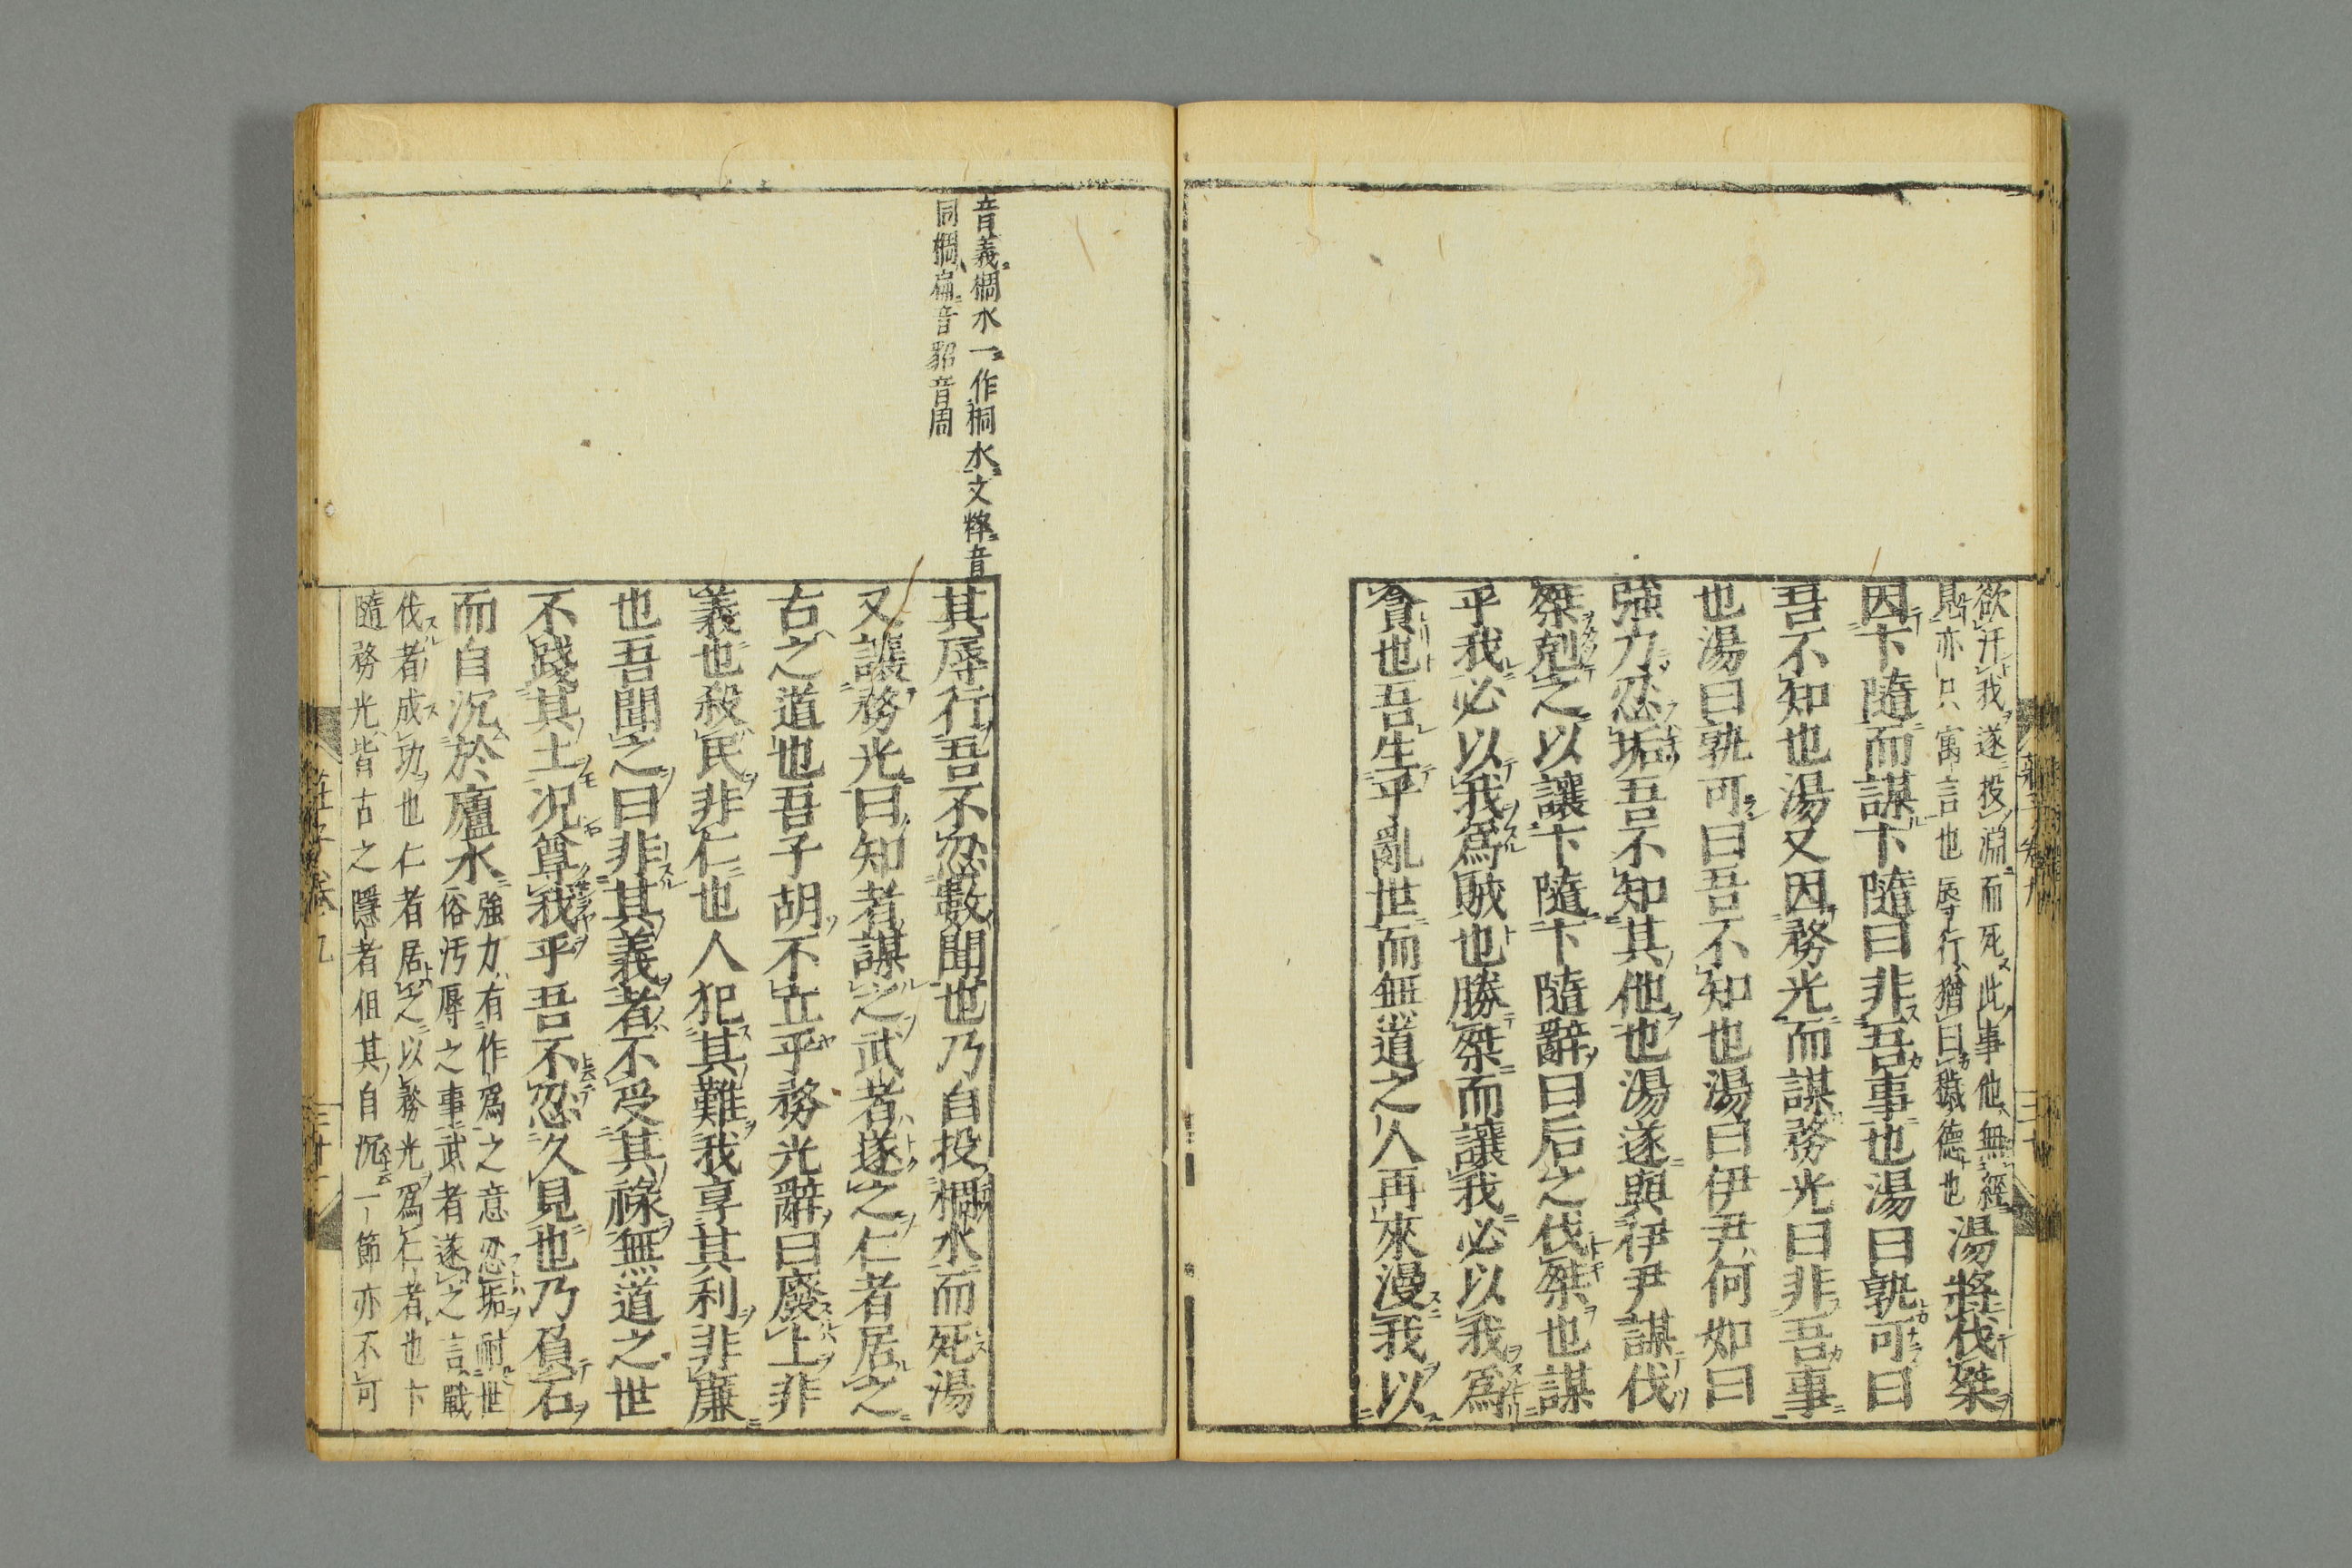 欲汙我遂投淵而死此事他無經
見亦只寓言也辱行猶曰穢德也
湯將伐桀
因卞隨而謀卞隨曰非吾事也湯曰孰可曰
吾不知也湯又因務光而謀務光曰非吾事
也湯曰孰可曰吾不知也湯曰伊尹何如曰
強力忍垢吾不知其他也湯遂與伊尹謀伐
桀剋之以讓卞隨卞隨辭曰后之伐桀也謀
乎我必以我爲賊也勝桀而讓我必以我爲
貪也吾生乎亂世而無道之人再來漫我以
音義椆水一作桐水文粹音
同稠扁音貂音周
其辱行吾不忍數聞也乃自投椆水而死湯
又讓務光曰知者謀之武者遂之仁者居之
古之道也吾子胡不立乎務光辭曰廢上非
義也殺民非仁也人犯其難我享其利非廉
也吾聞之曰非其義者不受其祿無道之世
不踐其土況尊我乎吾不忍久見也乃負石
而自沉於廬水
強力有作爲之意忍垢耐世
俗汚辱之事武者遂之言戰
伐者成功也仁者居之以務光爲仁者也卞
隨務光皆古之隱者但其自沉一節亦不可
莊子卷九
三十一